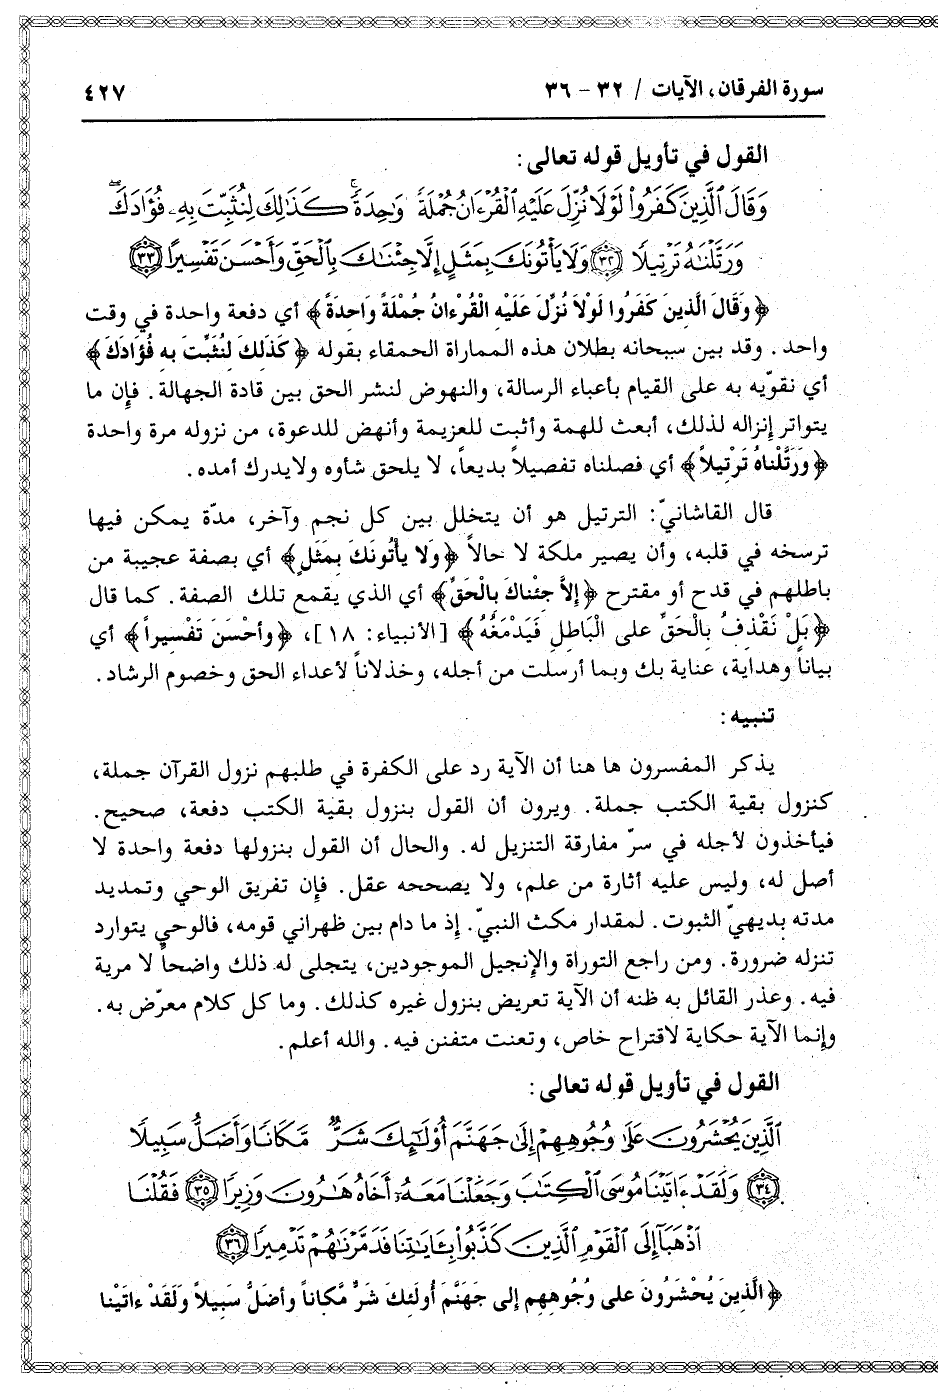 سورة الفرقان، الآيات / ٣٢ - ٣٦ ٤٢٧
القول في تأويل قوله تعالى:
وَقَالَ ٱلَّذِينَ كَفَرُوا۟ لَوْلَا نُزِّلَ عَلَيْهِ ٱلْقُرْءَانُ جُمْلَةً وَٰحِدَةً ۚ كَذَٰلِكَ لِنُثَبِّتَ بِهِۦ فُؤَادَكَ ۖ
وَرَتَّلْنَٰهُ تَرْتِيلًا ٣٢ وَلَا يَأْتُونَكَ بِمَثَلٍ إِلَّا جِئْنَٰكَ بِٱلْحَقِّ وَأَحْسَنَ تَفْسِيرًا ٣٣
﴿وَقَالَ الَّذِينَ كَفَرُوا لَوْلاَ نُزِّلَ عَلَيْهِ الْقُرْءَانُ جُمْلَةً وَاحِدَةً﴾ أي دفعة واحدة في وقت
واحد. وقد بين سبحانه بطلان هذه المماراة الحمقاء بقوله ﴿كَذَلِكَ لِنُثَبِّتَ بِهِ فُؤَادَكَ﴾
أي نقوّيه به على القيام بأعباء الرسالة، والنهوض لنشر الحق بين قادة الجهالة. فإن ما
يتواتر إنزاله لذلك، أبعث للهمة وأثبت للعزيمة وأنهض للدعوة، من نزوله مرة واحدة
﴿وَرَتَّلْناهُ تَرْتِيلاً﴾ أي فصلناه تفصيلاً بديعاً، لا يلحق شأوه ولايدرك أمده.
قال القاشانيّ: الترتيل هو أن يتخلل بين كل نجم وآخر، مدّة يمكن فيها
ترسخه في قلبه، وأن يصير ملكة لا حالاً ﴿وَلا يأْتُونَكَ بِمَثَلٍ﴾ أي بصفة عجيبة من
باطلهم في قدح أو مقترح ﴿إِلاَّ جِئْناكَ بالْحَقِّ﴾ أي الذي يقمع تلك الصفة. كما قال
﴿بَلْ نَقْذِفُ بِالْحَقِّ على الْبَاطِلِ فَيَدْمَغُهُ﴾ [الأنبياء: ١٨]، ﴿وَأَحْسَنَ تَفْسِيراً﴾ أي
بياناً وهداية، عناية بك وبما أرسلت من أجله، وخذلاناً لأعداء الحق وخصوم الرشاد.
تنبيه:
يذكر المفسرون ها هنا أن الآية رد على الكفرة في طلبهم نزول القرآن جملة،
كنزول بقية الكتب جملة. ويرون أن القول بنزول بقية الكتب دفعة، صحيح.
فيأخذون لأجله في سرّ مفارقة التنزيل له. والحال أن القول بنزولها دفعة واحدة لا
أصل له، وليس عليه أثارة من علم، ولا يصححه عقل. فإن تفريق الوحي وتمديد
مدته بديهيّ الثبوت. لمقدار مكث النبيّ. إذ ما دام بين ظهراني قومه، فالوحي يتوارد
تنزله ضرورة. ومن راجع التوراة والإنجيل الموجودين، يتجلى له ذلك واضحاً لا مرية
فيه. وعذر القائل به ظنه أن الآية تعريض بنزول غيره كذلك. وما كل كلام معرّض به.
وإنما الآية حكاية لاقتراح خاص، وتعنت متفنن فيه. والله أعلم.
القول في تأويل قوله تعالى:
ٱلَّذِينَ يُحْشَرُونَ عَلَىٰ وُجُوهِهِمْ إِلَىٰ جَهَنَّمَ أُو۟لَٰٓئِكَ شَرٌّ مَّكَانًا وَأَضَلُّ سَبِيلًا
٣٤ وَلَقَدْ ءَاتَيْنَا مُوسَى ٱلْكِتَٰبَ وَجَعَلْنَا مَعَهُۥٓ أَخَاهُ هَٰرُونَ وَزِيرًا ٣٥ فَقُلْنَا
ٱذْهَبَآ إِلَى ٱلْقَوْمِ ٱلَّذِينَ كَذَّبُوا۟ بِـَٔايَٰتِنَا فَدَمَّرْنَٰهُمْ تَدْمِيرًا ٣٦
﴿الَّذِينَ يُحْشَرُونَ عَلى وُجُوهِهِم إلى جَهَنَّمَ أُولَئِكَ شَرٌّ مَّكاناً وأضَلُّ سَبِيلاً وَلَقَدْ ءاتَيْنا